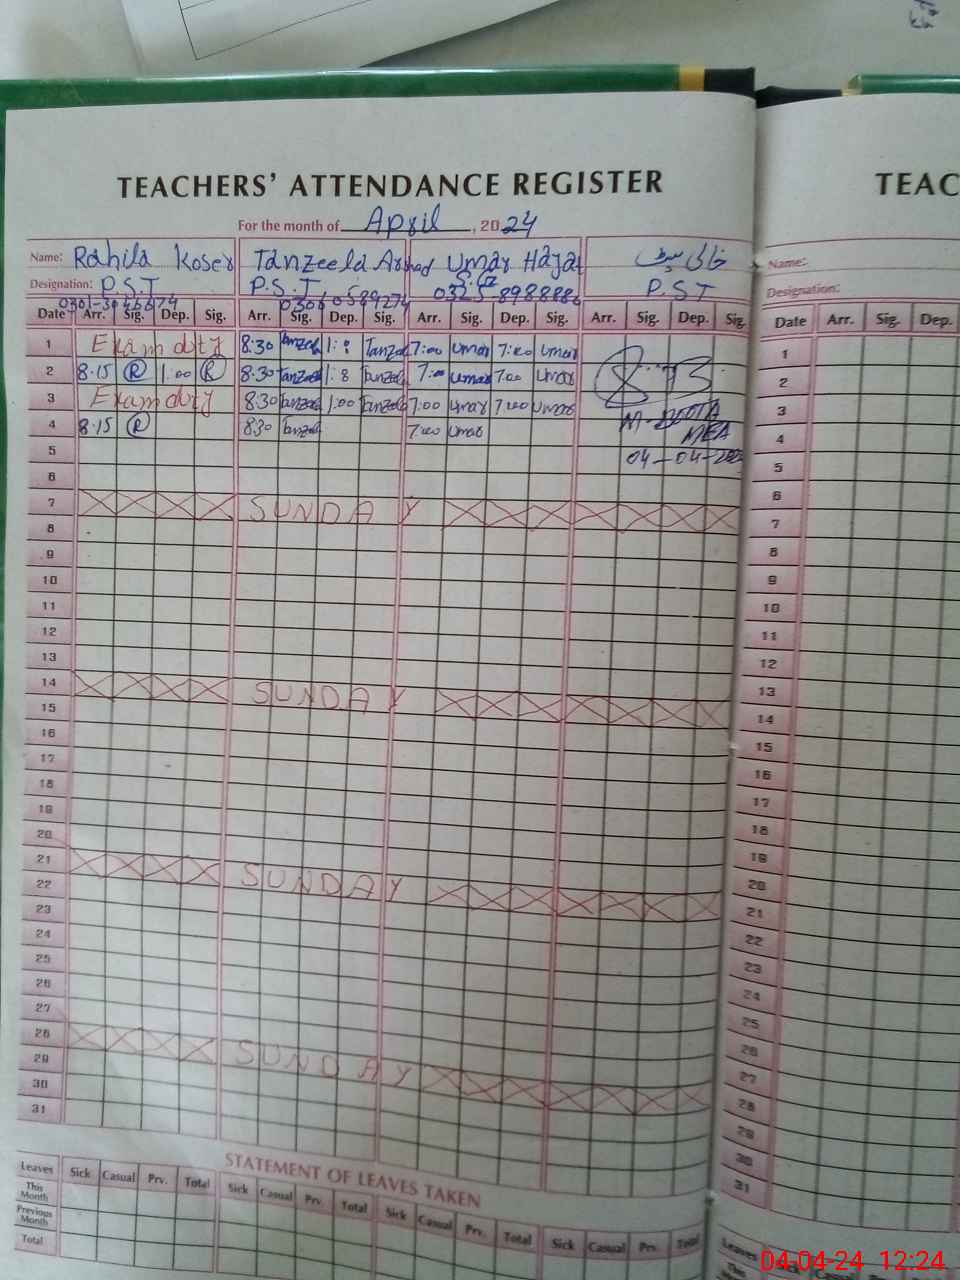 TEACHERS' ATTENDANCE REGISTER
TEAC
For the month of April, 2024
Name: Rahila Koser Tanzeela Arshad Umar Hayat خالی سیٹ
Name:
Designation: P.S.T P.S.T P.S.T
Designation:
0306 0589274 0325-8988886
Date Arr. Sig. Dep. Sig. Arr. Sig. Dep. Sig. Arr. Sig. Dep. Sig. Arr. Sig. Dep. Sig.
Date Arr. Sig. Dep.
1 Exam duty 8:30 Tanzeel 1:8 Tanzeel 7:00 Umar 7:00 Umar
2 8.15 R 1:00 R 8:30 Tanzeel 1:8 Tanzeel 7:00 Umar 7:00 Umar
3 Exam duty 8:30 Tanzeel 1:00 Tanzeel 7:00 Umar 7:00 Umar
M-BOOTA
4 8.15 R 8:30 Tanzeel 7:00 Umar
MEA
5
04-04-2024
6
7 SUNDAY
8
9
10
11
12
13
14 SUNDAY
15
16
17
18
19
20
21 SUNDAY
22
23
24
25
26
27
28 SUNDAY
29
30
31
1
2
3
4
5
6
7
8
9
10
11
12
13
14
15
16
17
18
19
20
21
22
23
24
25
26
27
28
29
30
31
STATEMENT OF LEAVES TAKEN
Leaves Sick Casual Prv. Total Sick Casual Prv. Total Sick Casual Prv. Total Sick Casual Prv. Total
This Month
Previous Month
Total
Leaves
04-04-24 12:24